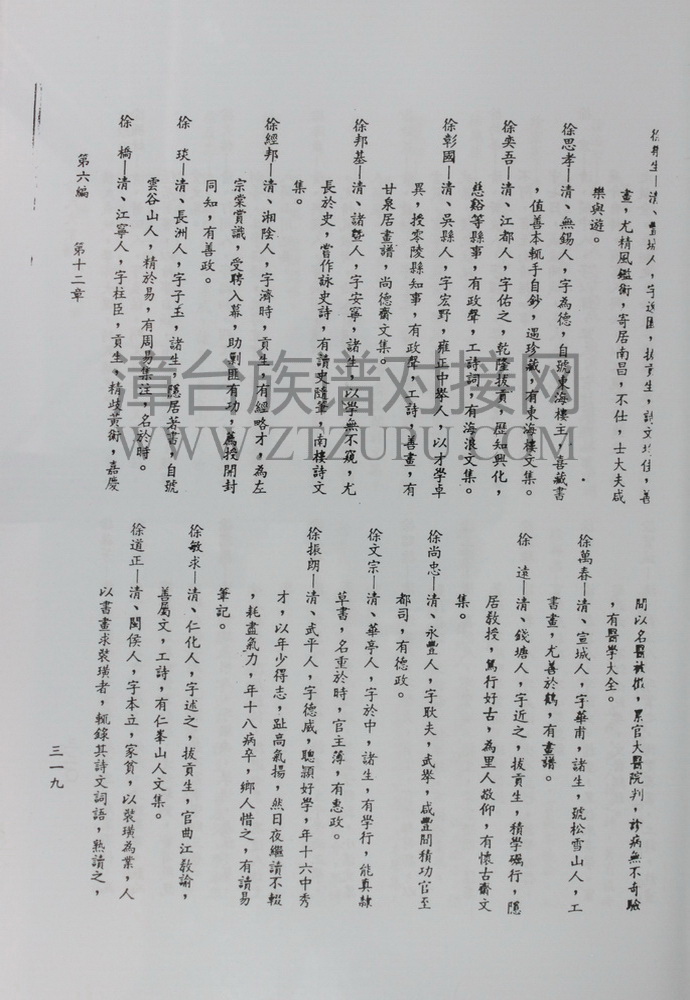 徐井生—清、豐城人，字逸園，拔貢生，詩文均佳，善
畫，尤精風鑑術，寄居南昌，不仕，士大夫咸
樂與遊。
徐思孝—清、無錫人，字為德，自號東海樓主，喜藏書
，值善本輒手自鈔，遇珍藏，有東海樓文集。
徐奕吾—清、江都人，字佑之，乾隆拔貢，歷知興化，
慈谿等縣事，有政聲，工詩詞，有海浪文集。
徐彰國—清、吳縣人，字宏野，雍正中舉人，以才學卓
異，授零陵縣知事，有政聲，工詩，善畫，有
甘泉居畫譜，尚德齋文集。
徐邦基—清、諸暨人，字安寧，諸生，以學無不窺，尤
長於史，嘗作詠史詩，有讀史隨筆，南樓詩文
集。
徐經邦—清、湘陰人，字濟時，貢生，有經略才，為左
宗棠賞識，受聘入幕，助剿匪有功，薦授開封
同知，有善政。
徐　琰—清、長洲人，字子玉，諸生，隱居著書，自號
雲谷山人，精於易，有周易集注，名於時。
徐　橋—清、江寧人，字柱臣，貢生，精歧黃術，嘉慶
間以名醫被徵，累官大醫院判，診病無不奇驗
，有醫學大全。
徐萬春—清、宣城人，字華甫，諸生，號松雪山人，工
書畫，尤善於鶴，有畫譜。
徐　遠—清、錢塘人，字近之，拔貢生，積學礪行，隱
居教授，篤行好古，為里人敬仰，有懷古齋文
集。
徐尚忠—清、永豐人，字耿夫，武舉，咸豐間積功官至
都司，有德政。
徐文宗—清、華亭人，字於中，諸生，有學行，能真隸
草書，名重於時，官主簿，有惠政。
徐振朗—清、武平人，字德威，聰穎好學，年十六中秀
才，以年少得志，趾高氣揚，然日夜繼讀不輟
，耗盡氣力，年十八病卒，鄉人惜之，有讀易
筆記。
徐敏求—清、仁化人，字述之，拔貢生，官曲江教諭，
善屬文，工詩，有仁峯山人文集。
徐道正—清、閩侯人，字本立，家貧，以裝璜為業，人
以書畫求裝璜者，輒錄其詩文詞語，熟讀之，
第六編　第十二章
三一九
章台族谱对接网
WWW.ZTZUPU.COM